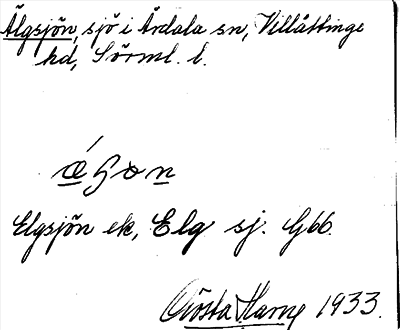 Älgsjön, sjö i Årdala sn, Villåttinge
hd, Sörml. l.
Elgsjön ek, Elg sj. Gbb.
Gösta Harng 1933.